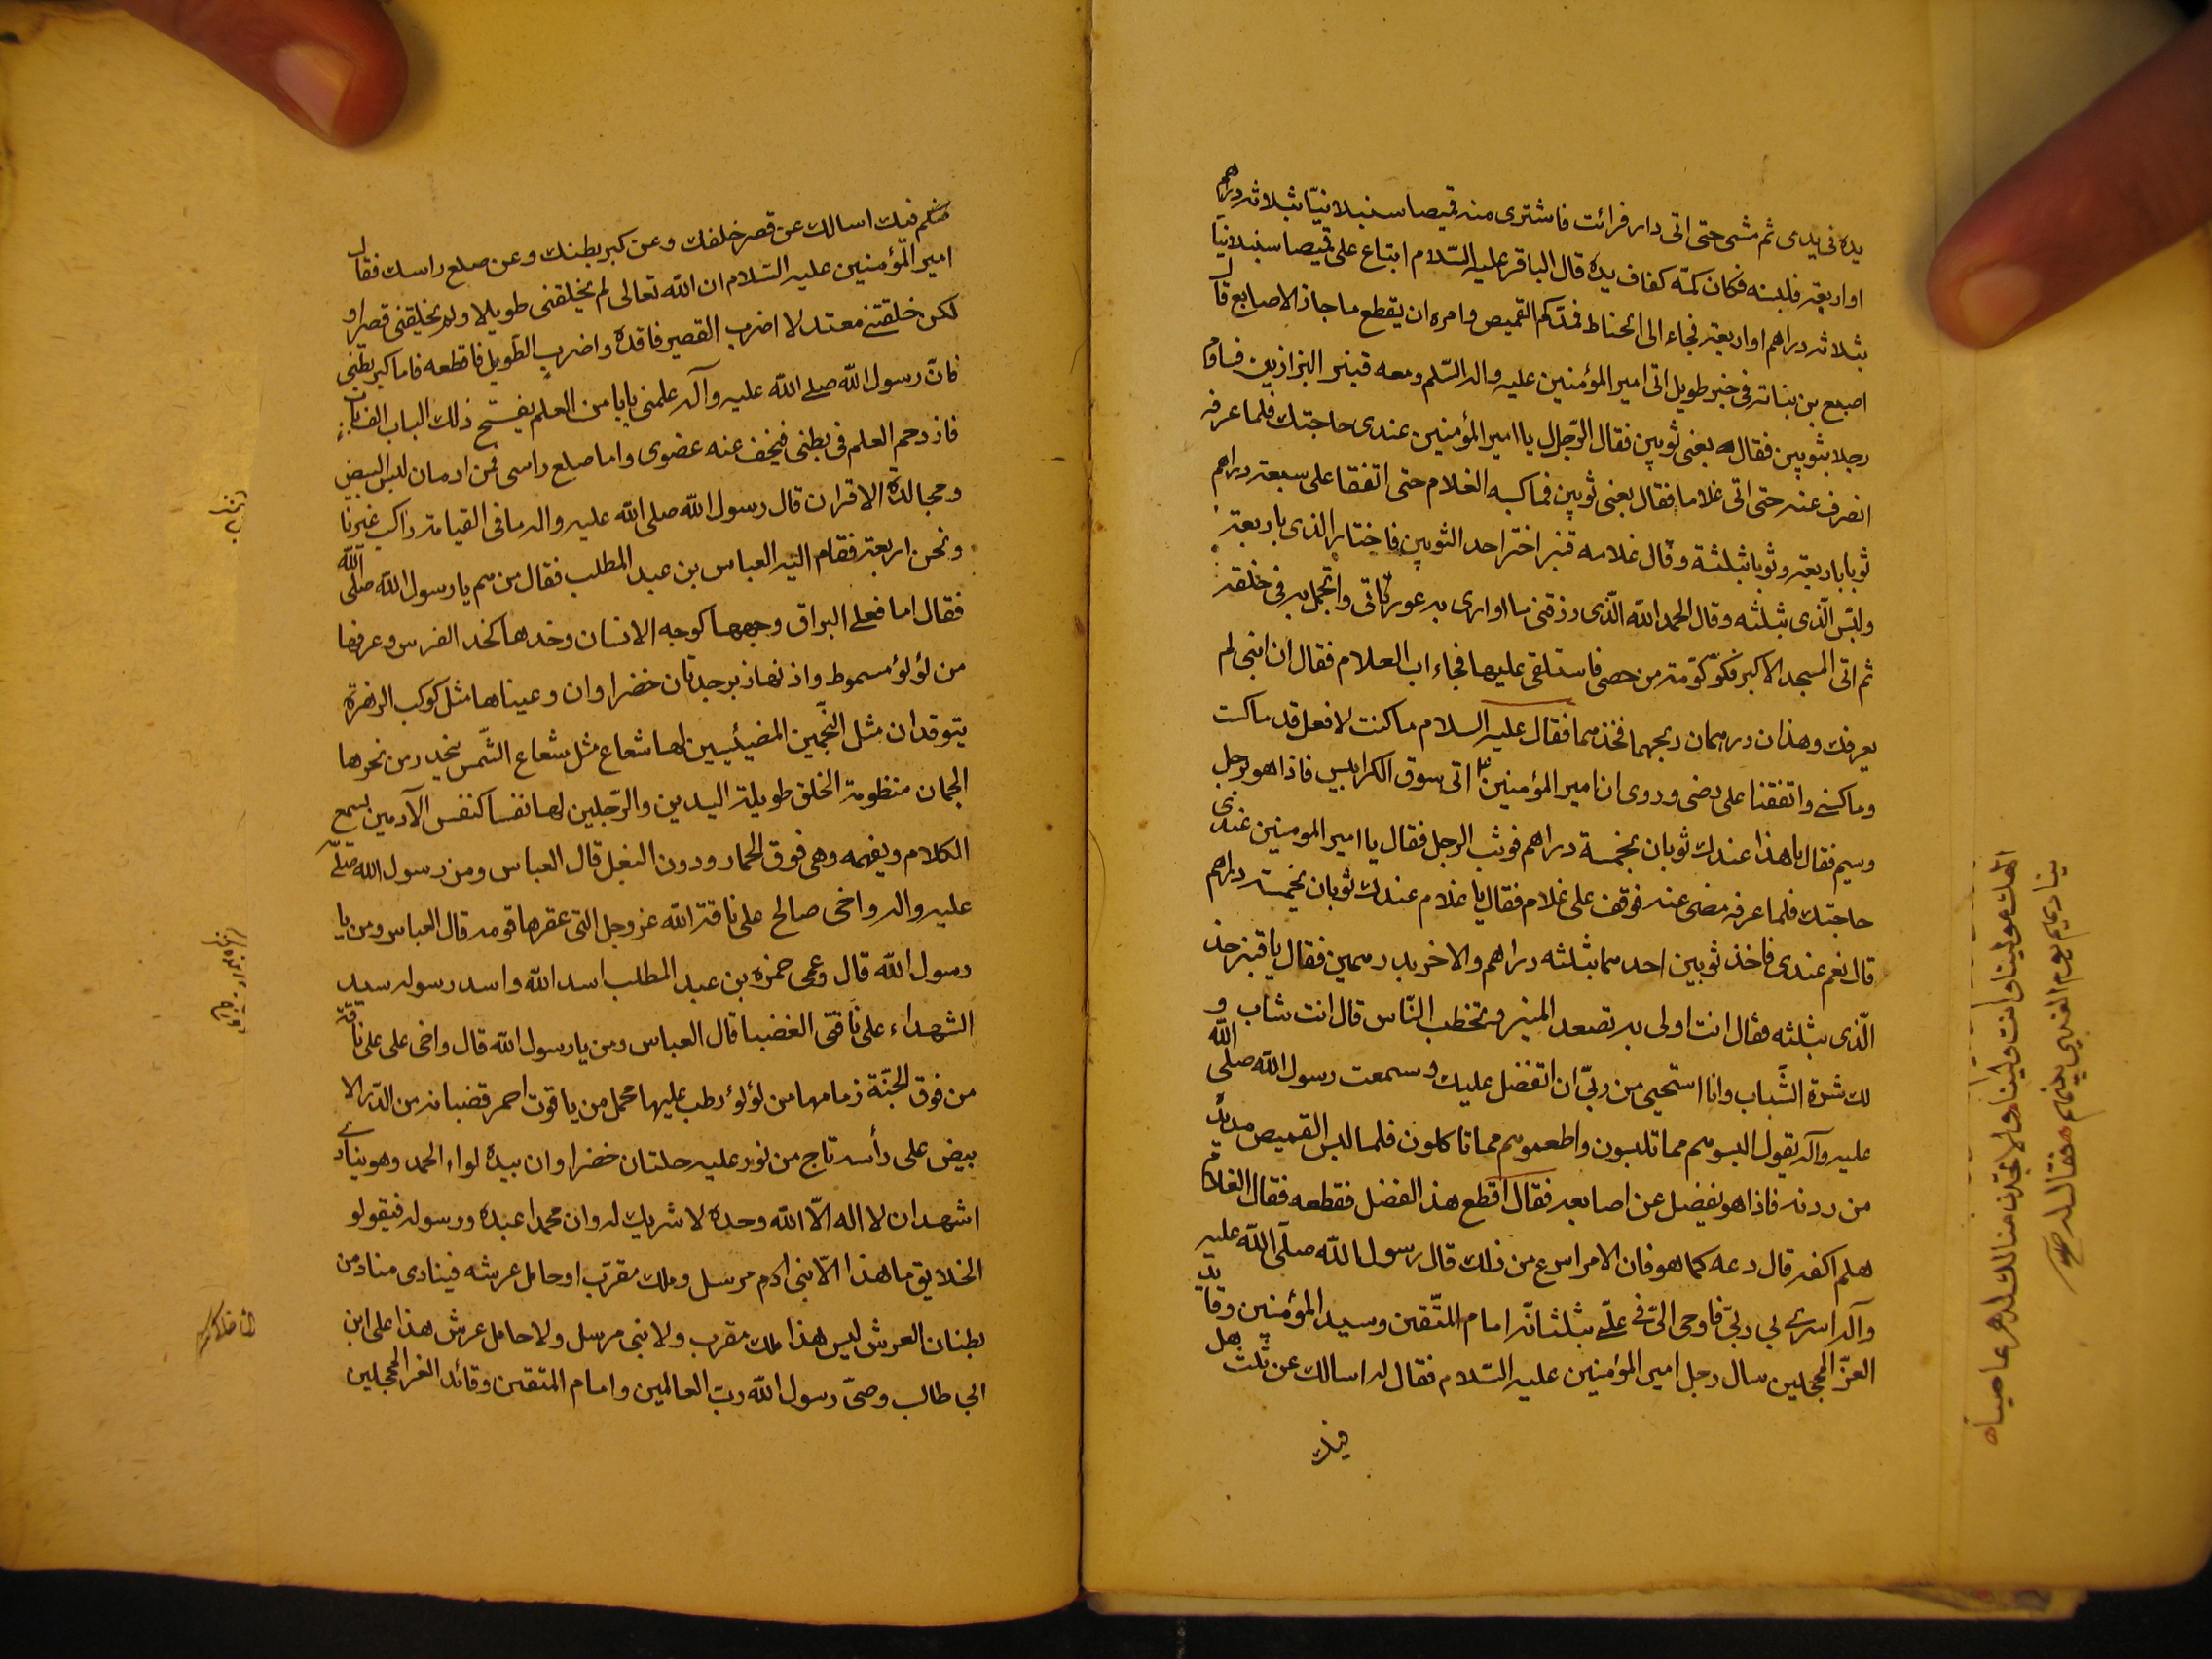 يده فى يدى ثم مشى حتى اتى دار فرات فاشترى منه قميصا سنبلانيّا بثلاثه دراهم
او اربعة فلبسه فكان كمّه كفاف يده قال الباقر عليه السّلام ابتاع على قميصا سنبلانيا
بثلاثه دراهم او اربعة فجاء الى الخناط فمدّ كم القميص وامره ان يقطع ما جاز الاصابع قال
اصبع بن بناته فى خبر طويل اتى امير المؤمنين عليه واله السّلم ومعه قنبر البزازين فساوم
رجلا بثوبين فقال بعنى ثوبين فقال الرّجل يا امير المؤمنين عندى حاجتك فلما عرفه
انصرف عنه حتى اتى غلاما فقال بعنى ثوبين فماكسه الغلام حتى اتفقا على سبعة دراهم
ثوبا باربعة وثوبا بثلثة وقال غلامه قنبر اختر احد الثوبين فاختار الذى باربعة
ولبس الّذى بثلثه وقال الحمد الله الّذى رزقنى ما اوارى به عورتى واتجمل به فى خلقه
ثم اتى المسجد الاكبر فكوّم كومة من حصى فاستلقى عليها فجاء اب الغلام فقال ان ابنى لم
يعرفك وهذان درهمان ربحهما فخذهما فقال عليه السلام ما كنت لافعل قد ماكست
وماكسنى واتفقنا على رضى وروى ان امير المؤمنين اتى سوق الكرابيس فاذا هو برجل
وسيم فقال يا هذا عندك ثوبان بخمسة دراهم فوثب الرجل فقال يا امير المومنين عندى
حاجتك فلما عرفه مضى عنه فوقف على غلام فقال يا غلام عندك ثوبان بخمسة دراهم
قال نعم عندى فاخذ ثوبين احدهما بثلثه دراهم والاخر بدرهمين فقال يا قنبر خذ
الّذى بثلثه فقال انت اولى به تصعد المنبر وتخطب النّاس قال انت شاب و
لك شرة الشّباب وانا استحيى من ربّى ان اتفضل عليك و سمعت رسول الله صلى الله
عليه وآله يقول البسوهم مما تلبسون واطعموهم مما تاكلون فلما لبس القميص مد يد
من ردنه فاذا هو يفضل عن اصابعه فقال اقطع هذ الفضل فقطعه فقال الغلام
هلم اكفه قال دعه كما هو فان الامر اسرع من ذلك قال رسول الله صلّى الله عليه
وآله اسرى بى ربّى فاوحى الىّ فى علّى بثلث انّه امام المتّقين وسيد المؤمنين وقائد
الغرّ المحجلين سال رجل امير المؤمنين عليه السّلام فقال له اسالك عن ثلث هل
فيك
الهك مولينا وانت ولينا ولا تجدن منا لك لدهر عاصيا
يناديهم يوم الغدير نبيهم فقال له
هنّ فيك اسالك عن قصر خلقك وعن كبر بطنك وعن صلع راسك فقال
امير المؤمنين عليه السّلام ان الله تعالى لم يخلقنى طويلا ولم يخلقنى قصيرا و
لكن خلقنى معتدلا اضرب القصير فاقده واضرب الطّويل فاقطعه فاما كبر بطنى
فانّ رسول الله صلى الله عليه وآله علمنى بابا من العلم يفتح ذلك الباب الف باب
فازدحم العلم فى بطنى فيخف عنه عضوى واما صلع راسى فمن ادمان لبس البيض
ومجالدة الاقران قال رسول الله صلى الله عليه واله ما فى القيامة راكب غيرنا
ونحن اربعة فقام اليه العباس بن عبد المطلب فقال من هم يا رسول الله صلى الله
فقال اما فعلى البراق وجهها كوجه الانسان وخدها كخد الفرس وعرفها
من لؤلؤ مسموط واذنها زبرجدتان خضراوان وعيناها مثل كوكب الزهرة
يتوقدان مثل النّجمين المضيئيين لها شعاع مثل شعاع الشّمس يتحدر من نحرها
الجمان منظومة الخلق طويلة اليدين والرّجلين لها نفسا كنفس الآدمين يسمع
الكلام ويفهمه وهى فوق الحمار ودون البغل قال العباس ومن رسول الله صلّى
عليه واله واخى صالح على ناقة الله عز وجل التى عقرها قومه قال العباس ومن يا
رسول الله قال وعمى حمزه بن عبد المطلب اسد الله واسد رسوله سيد
الشهداء على ناقتى الغضبا قال العباس ومن يا رسول الله قال واخى على على ناقة
من فوق الجنّة زمامها من لؤلؤ رطب عليها محمل من ياقوت احمر قضبانه من الدّر الا
بيض على رأسه تاج من نور عليه حلتان خضراوان بيده لواء الحمد وهو ينادى
اشهد ان لا اله الّا الله وحده لا شريك له وان محمدا عبده ورسوله فيقولو
الخلايق ما هذا الّا نبى ادم مرسل وملك مقرّب او حامل عرشه فينادى مناد من
بطنان العرش ليس هذا ملك مقرب ولا نبى مرسل ولا حامل عرش هذا على ابن
ابى طالب وصىّ رسول الله ربّ العالمين وامام المتقين وقائد الغر المحجلين